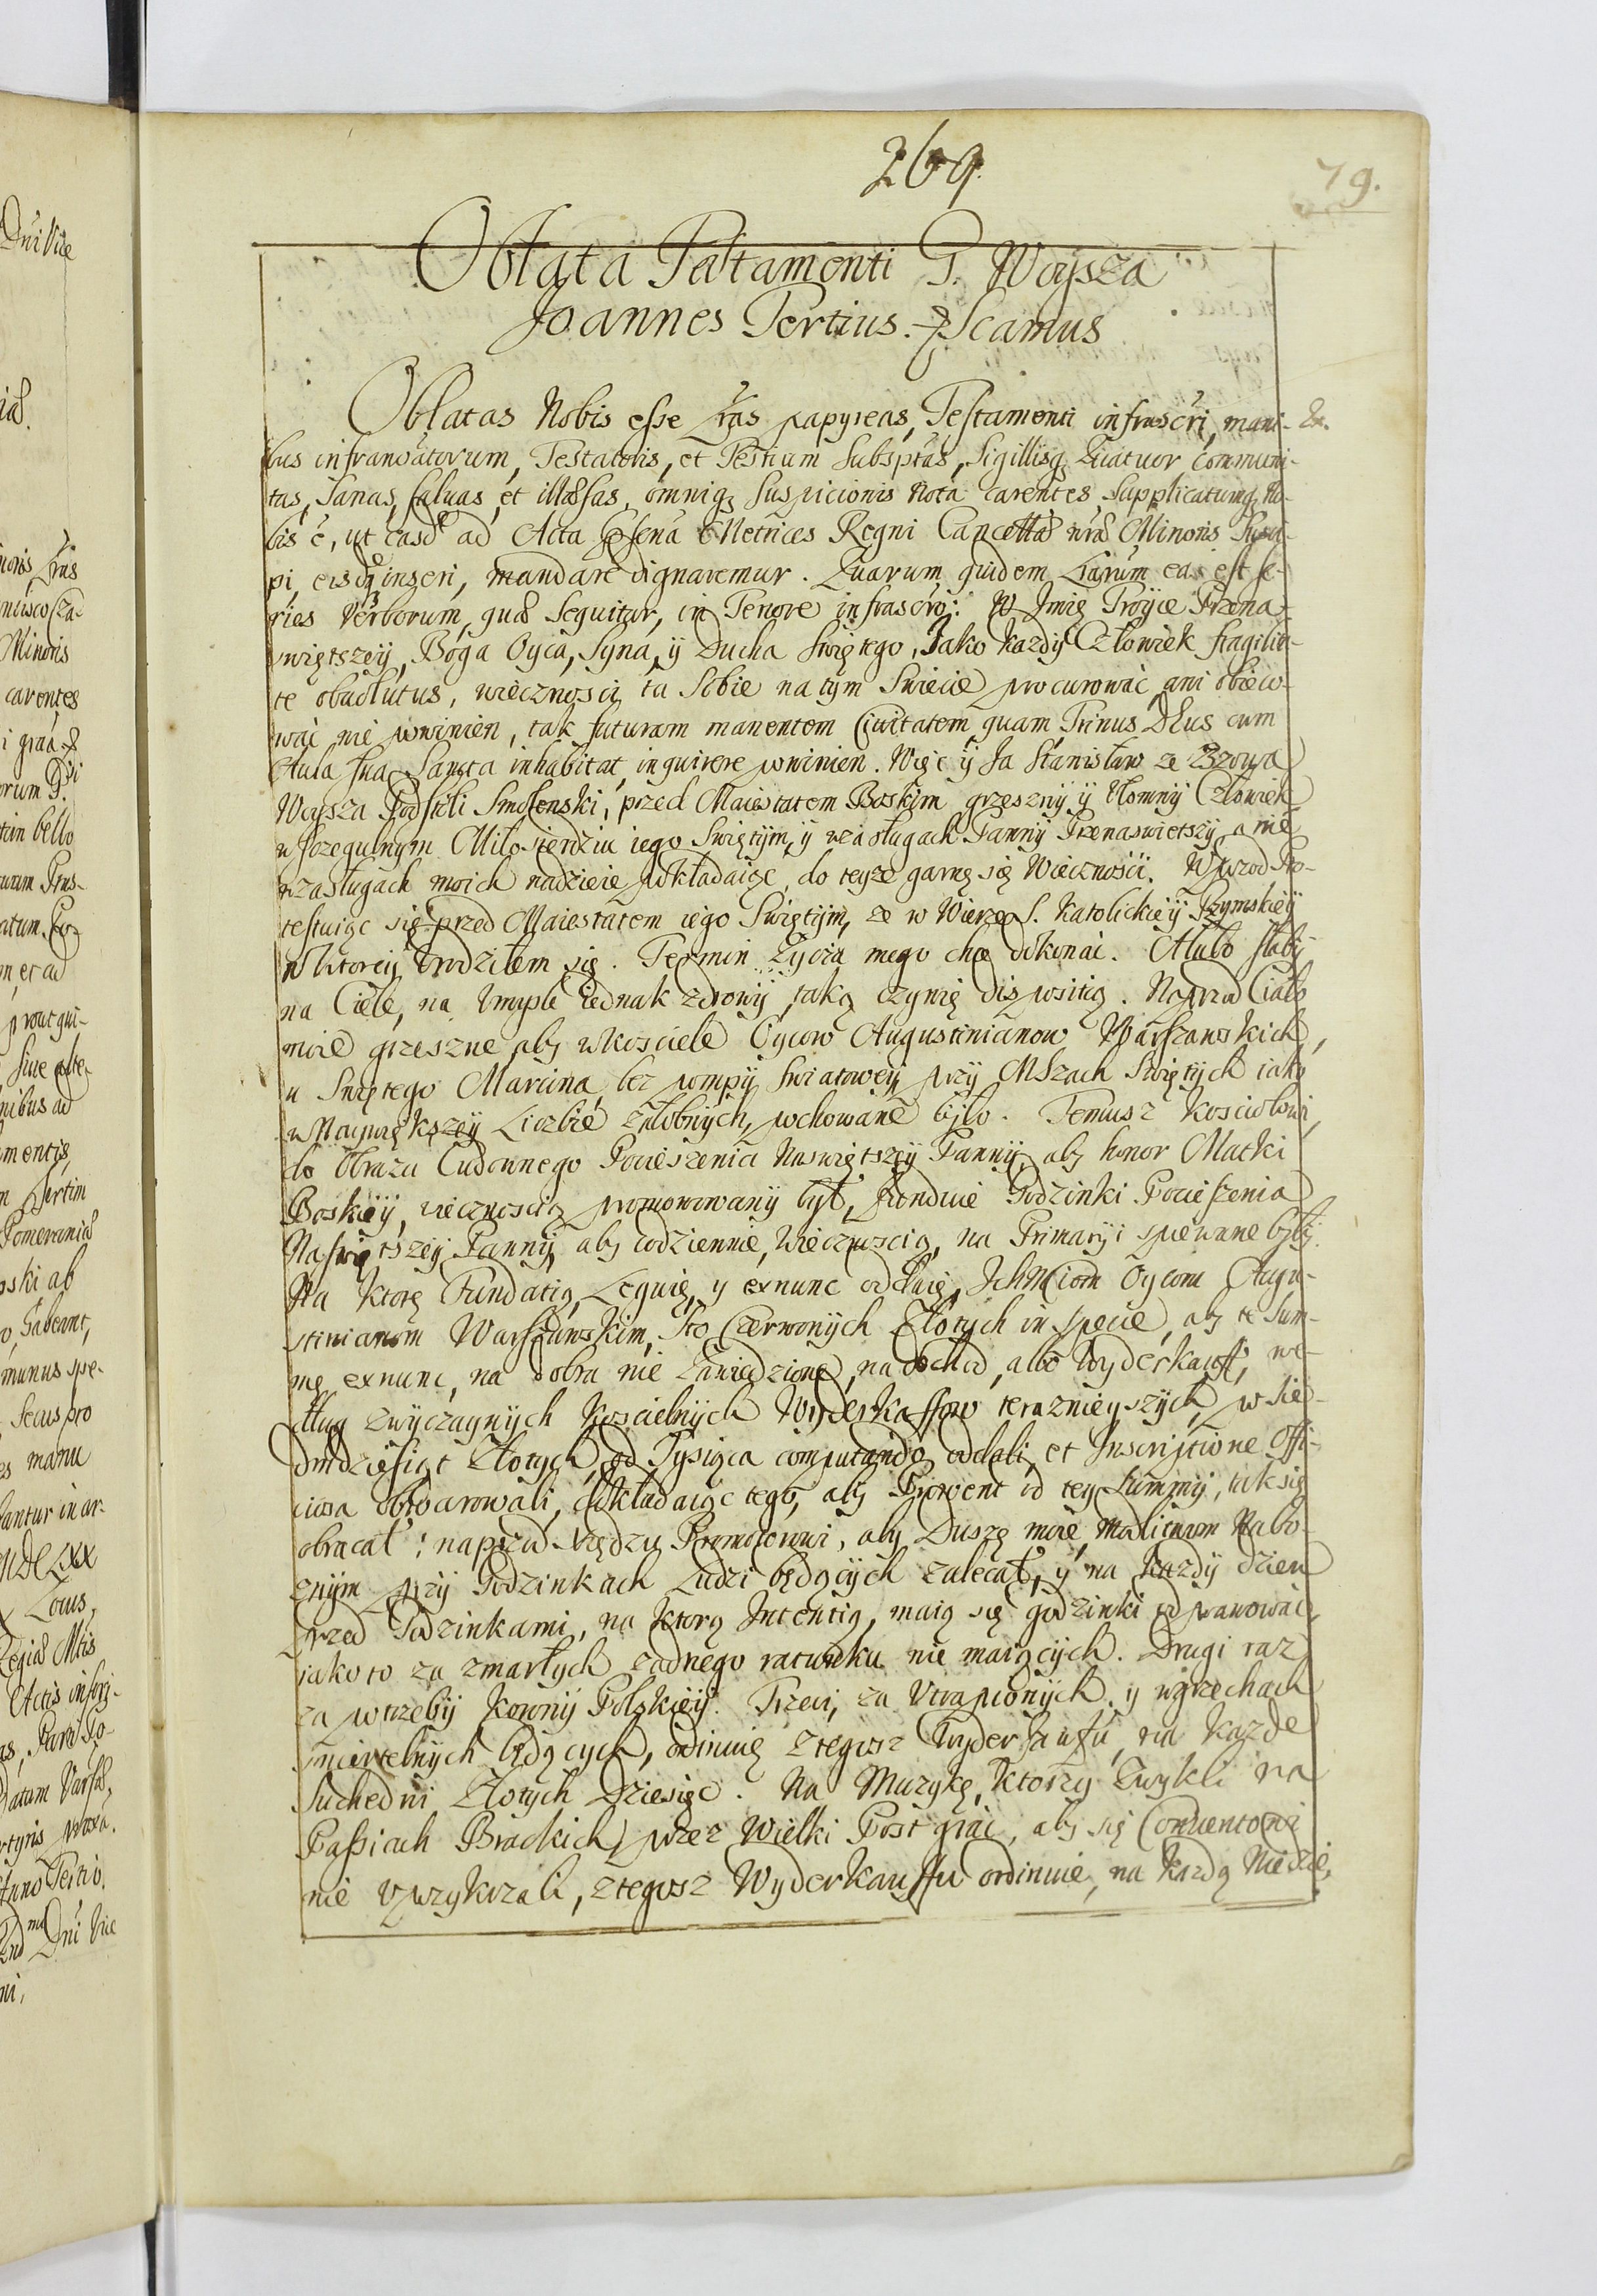 269.
79.
Oblata Testamenti G. Woysza
Joannes Tertius. Scamus
Oblatas Nobis esse Lras papyreas, Testamenti infrascri, mani- &.
bus infranoatorum, Testatoris, et Testium Subsptas, Sigillisq; Quatuor communi-
tas, Sanas, saluas, et illæsas, omniq; Suspicionis Nota carentes, Supplicatumq; No-
bis e, ut easd ad Acta Metrices Regni Cancellæ nræ Minoris Susci-
pi, eisdq; inseri, mandare dignaremur. Quarum quidem Lrarum ea est se-
ries Verborum, quæ Sequitur, in Tenore infrascro: W Jmię Troyce Przena-
swiętszey, Boga Oyca, Syna, ÿ Ducha Swiętego, Jako Kazdÿ Człowiek fragilita-
te obuolutus, wiecznosci tu Sobie na tym Swiecie procurować ani obieco-
wać nie powinien, tak futuram manentem Ciuitatem quam Trinus Deus cum
Aula sua Sancta inhabitat, inquirere powinien. Więc ÿ Ja Stanisław ze Bzowa
Woysza Podstoli Smolenski, przed Maiestatem Boskim grzesznÿ ÿ Ułomnÿ Człowiek
w szczegulnym Miłosierdziu iego Swiętÿm, ÿ w zasługach Pannÿ Przenaswietszÿ, a nie
w zasługach moich nadzieie pokładaiąc, do teyze garnę się Wiecznosci. W przod Pro-
testuiąc się przed Maiestatem iego Swiętÿm, ze w Wierze S. Katolickiey Rzymskieÿ
w ktoreÿ Urodziłem się. Termin Zycia mego chce dokonać. A lubo słabÿ
na Ciele, na Umysle iednak zdrowÿ, taką czynię dispositią. Naprzod Ciało
moie grzeszne aby w Kosciele Oycow Augustinianow Warszawskich,
u Swiętego Marcina, bez pompÿ Swiatoweÿ, przÿ Mszach Swiętych iako
w Naywiększey Liczbie załobnÿch, pochowane bÿło. Temusz Kosciołowi,
do Obrazu Cudownego Pocieszenia Naswiętszey Pannÿ, aby honor Matki
Boskieÿ, wiecznoscią promowowanÿ był, funduie Godzinki Pocieszenia
Naswiętszeÿ Pannÿ, aby codziennie, Wiecznoscią, na Primaryi spiewane bÿłÿ.
Na ktorę Fundatią, Leguię, y exnunc oddaię, IchMciom Oycom Augu-
stinianom Warszawskim, Sto Czerwonÿch Złotych in specie, aby te Sum-
mę exnunc, na dobra nie Zawiedzione, na obchod, albo Wyderkauff, we-
dług zwÿczaynÿch Koscielnÿch Wyderkaffow terazniejszÿch, po Sie-
dmdziesiąt Złotych, od Tysiąca computando oddali, et Inscriptione Offi-
ciosa obwarowali, dokładaiąc tego, aby Prowent od tey Summÿ, tak się
obracał: naprzod Xiędzu Promotorowi, aby Duszę moię, Modlitwom Nabo-
znÿm przÿ Godzinkach Ludzi będącÿch zalecał, ÿ na Kazdÿ dzien
przed Godzinkami, na ktorą Intentią, maią się godzinki odprawować,
iako to za zmarłych zadnego ratunku nie maiącÿch. Drugi raz
za potrzebÿ Koronÿ Polskieÿ. Trzeci, za Utrapionÿch, y w grzechach
smiertelnÿch będących, ordinuię z tegosz Wyderkauffu, na Kazde
Suchedni Złotych Dziesięc. Na Muzykę, ktorzy Zwykli na
Passiach Brackich przez Wielki Post grać, aby się Conuentowi
nie uprzykrzali, z tegosz Wyderkauffu ordinuie, na Kazdą Niedzie,